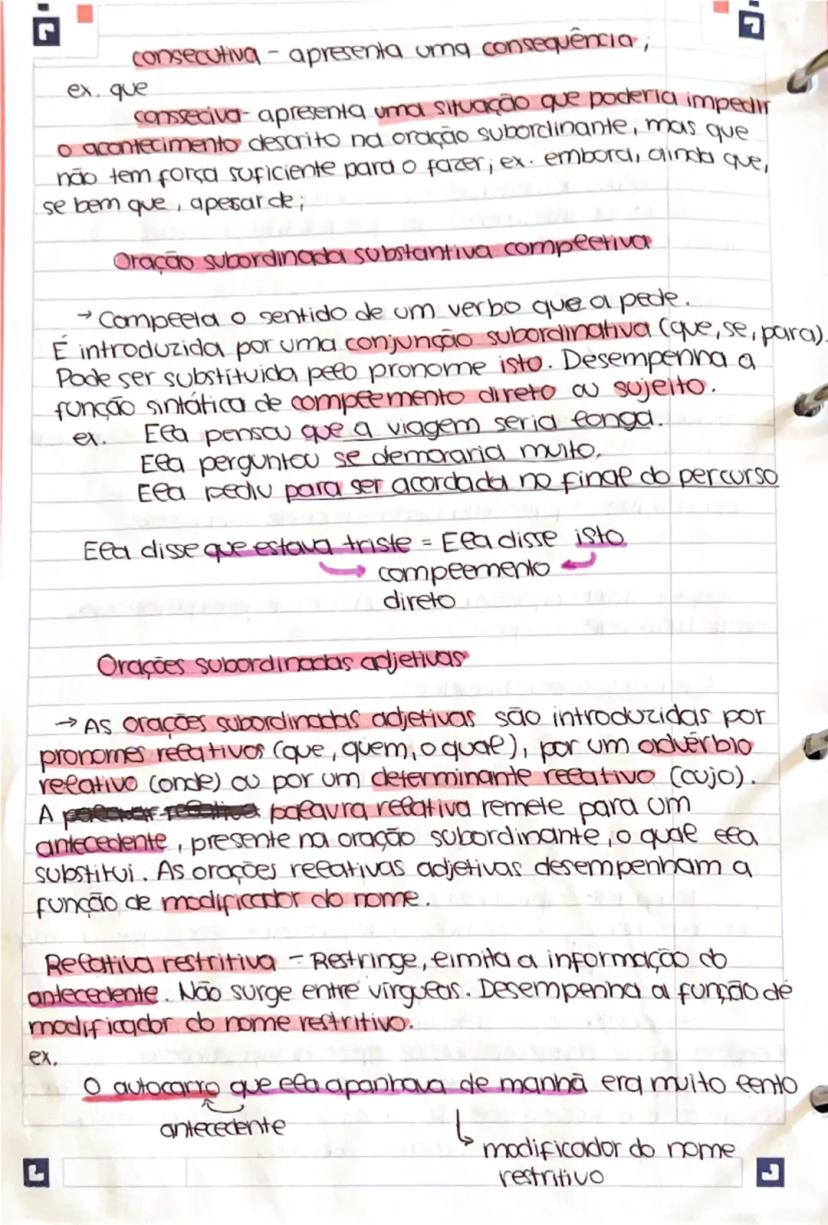 consecutiva - apresenta uma consequência;
ex. que
conseciva - apresenta uma situação que poderia impedir
o acontecimento descrito na oração subordinante, mas que
não tem força suficiente para o fazer; ex. embora, ainda que,
se bem que, apesar de;
Oração subordinada substantiva completiva
→ Completa o sentido de um verbo que a pede.
É introduzida por uma conjunção subordinativa (que, se, para).
Pode ser substituida pelo pronome isto. Desempenha a
função sintática de complemento direto ou sujeito.
ex. Ela pensou que a viagem seria longa.
Ela perguntou se demoraria muito.
Ela pediu para ser acordada no final do percurso
Ela disse que estava triste = Ela disse isto
complemento
direto
Orações subordinadas adjetivas
→ As orações subordinadas adjetivas são introduzidas por
pronomes relativos (que, quem, o qual), por um advérbio
relativo (onde) ou por um determinante relativo (cujo).
A palavra relativa remete para um
antecedente, presente na oração subordinante, o qual ela
substitui. As orações relativas adjetivas desempenham a
função de modificador do nome.
Relativa restritiva - Restringe, limita a informação do
antecedente. Não surge entre vírgulas. Desempenha a função de
modificador do nome restritivo.
ex.
O autocarro que ela apanhava de manhã era muito lento
antecedente
modificador do nome
restritivo